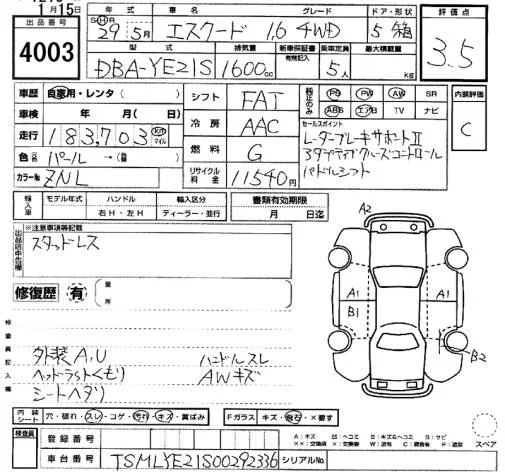 1月15日
出品番号
4003
年式 車名 グレード ドア・形状 評価点
SHR 29年5月 エスクード 1.6 4WD 5 箱 3.5
型式 排気量 新車保証書 有効記入 乗車定員 最大積載量
DBA-YE21S 1600cc 5人 kg
車歴 自家用・レンタ ( )
シフト FAT
純正のみ PS PW AW SR
ABS エアB TV ナビ
内装評価 C
車検 年 月( )
冷房 AAC
セールスポイント
レーダーブレーキサポートII
アダプティブクルーズコントロール
パドルシフト
走行 183,703 Km マイル
燃料 G
色 パール→( )
カラーNo ZNL
リサイクル料金 11540円
輸入車 モデル年式 ハンドル 輸入区分 書類有効期限
右H・左H ディーラー・並行 月 日迄
出品店申告欄 ※注意事項等記載
スタッドレス
修復歴 有 箇所
検査員記入欄
外装A,U ハンドルスレ
ヘッドライトくもり AWキズ
シートヘタリ
A2
A1 A1
B1
B2
内装シート 穴・破れ・スレ・コゲ・汚れ・キズ・黄ばみ
Fガラス キズ・飛石・×要す
スペア
検査員 登録番号
A:キズ U:ヘコミ B:キズ&ヘコミ S:サビ
××:交換済 X:交換要 W:波有 C:腐食有 P:塗装
車台番号 TSMLYE21S00292336 シリアルNo